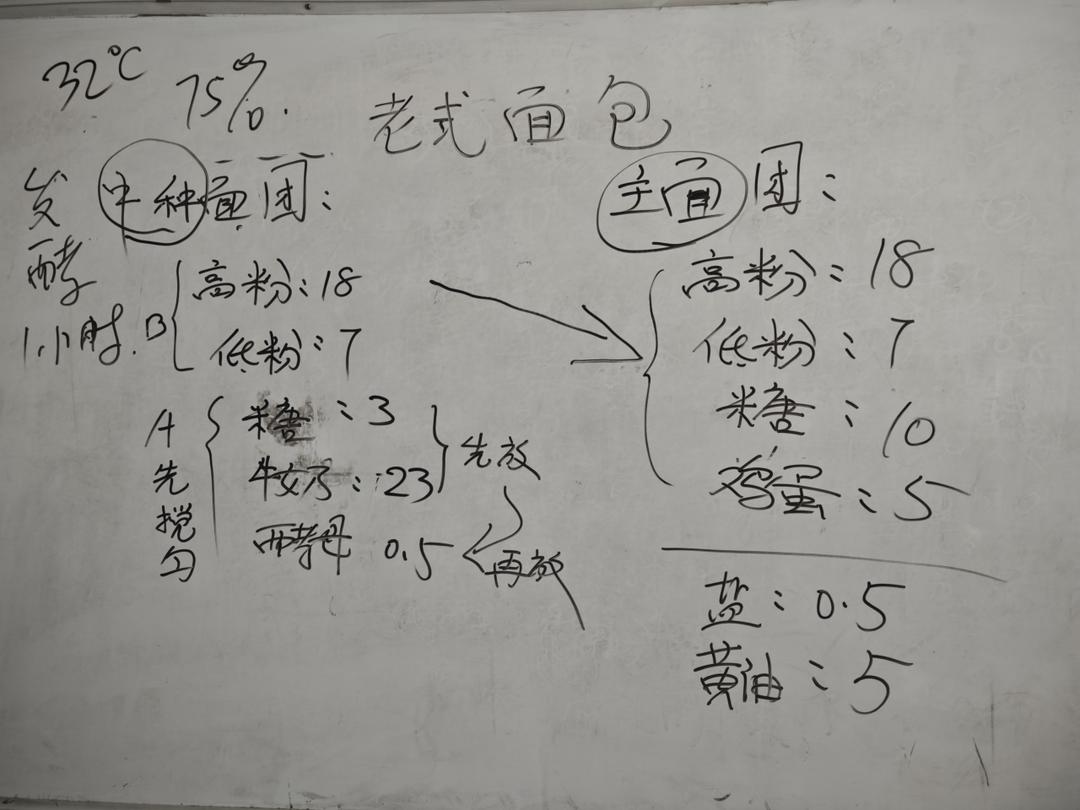 32℃ 75%.
老式面包
发酵1小时.
中种面团:
B
高粉:18
低粉:7
A先搅匀
糖:3
牛奶:23
先放
酵母 0.5
再放
主面团:
高粉:18
低粉:7
糖:10
鸡蛋:5
盐:0.5
黄油:5